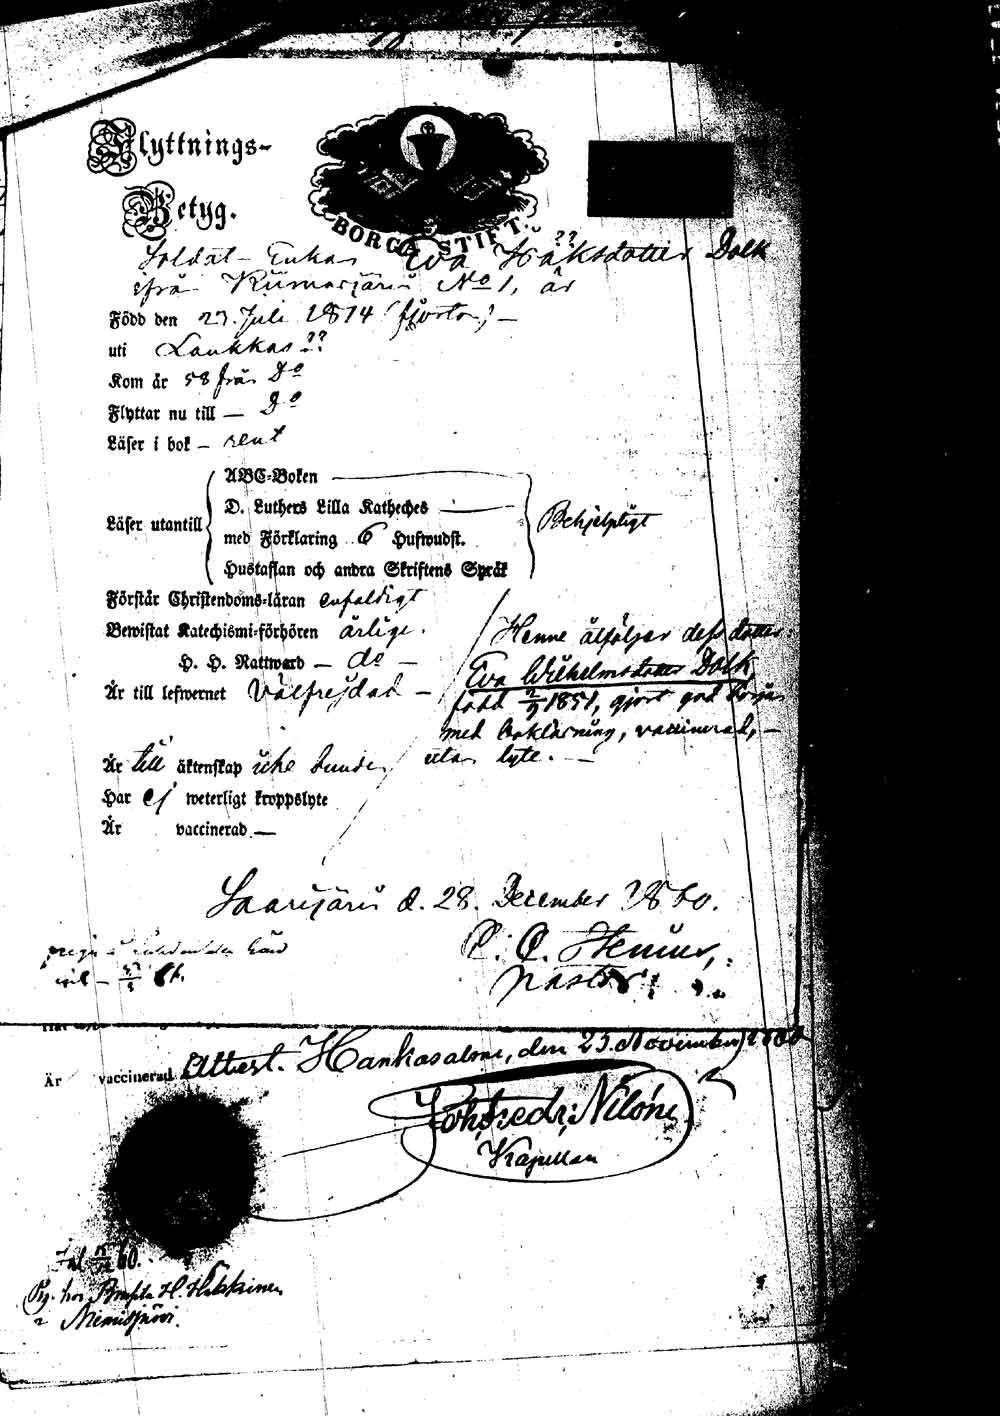 Flyttnings-
Betyg.
BORGÅ STIFT.
Soldat-Enkan Eva Håksdotter Dolk
ifrån Kiimasjärvi No 1, är
Född den 27. Juli 1814 (fjorton) —
uti Laukkas ??
Kom år 58 från Do
Flyttar nu till — Do
Läser i bok — rent
Läser utantill
ABC-Boken
D. Luthers Lilla Katheches
med Förklaring 6 Hufwudst.
Hustaflan och andra Skriftens Språk
Behjelpligt
Förstår Christendoms-läran enfaldigt
Bewistat Katechismi-förhören årlige.
H. H. Nattward — do —
Är till lefwernet Välfrejdad —
Henne åtföljer dess dotter
Eva Wilhelmsdotter Dolk,
född 2/9 1851, gjort god början
med boklärning, vaccinerad, —
utan lyte. —
Är till äktenskap icke bunden
Har ej weterligt kroppslyte
Är vaccinerad —
Saarijärvi d. 28. December 1860.
Pastor
Är vaccinerad. Attest. Hankasalmi, den 25. November 1860
Joh. Fredr. Nilón
Kapellan
H. Hakkinen
Niemisjärvi.